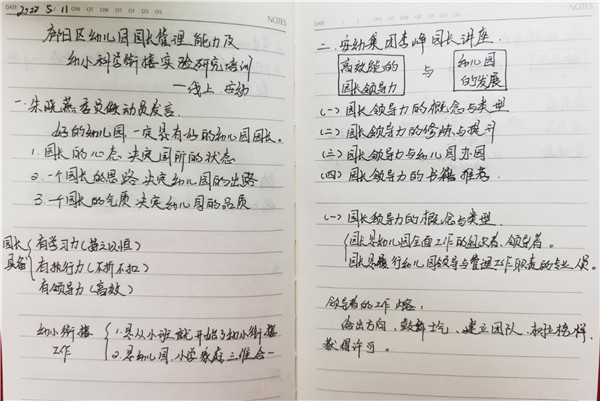 DATE 2023 5.11
NOTES
阝日区幼儿园园长管理能力及
幼小科学衔接实验研究培训
——线上 安幼
一.朱晓燕委员做动员发言.
好的幼儿园一定是有好的幼儿园园长。
1.园长的心态 决定园所的状态
2.一个园长的思路 决定幼儿园的出路
3.一个园长的气质 决定幼儿园的品质
园长具备
有学习力(持之以恒)
有执行力(不折不扣)
有领导力(高效)
幼小衔接工作
1.是从小班就开始了幼小衔接
2.是幼儿园.小学家庭三位合一
DATE
NOTES
二.安幼集团李峰园长讲座.
高效能的园长领导力 与 幼儿园的发展
(一)园长领导力的概念与类型
(二)园长领导力的修炼与提升
(三)园长领导力与幼儿园办园
(四)园长领导力的书籍推荐.
(一)园长领导力的概念与类型.
园长是幼儿园全面工作的组织者、领导者。
园长是履行幼儿园领导与管理工作职责的专业人员。
领导者的工作内容:
给出方向、鼓舞士气、建立团队、树立榜样.
获得许可。